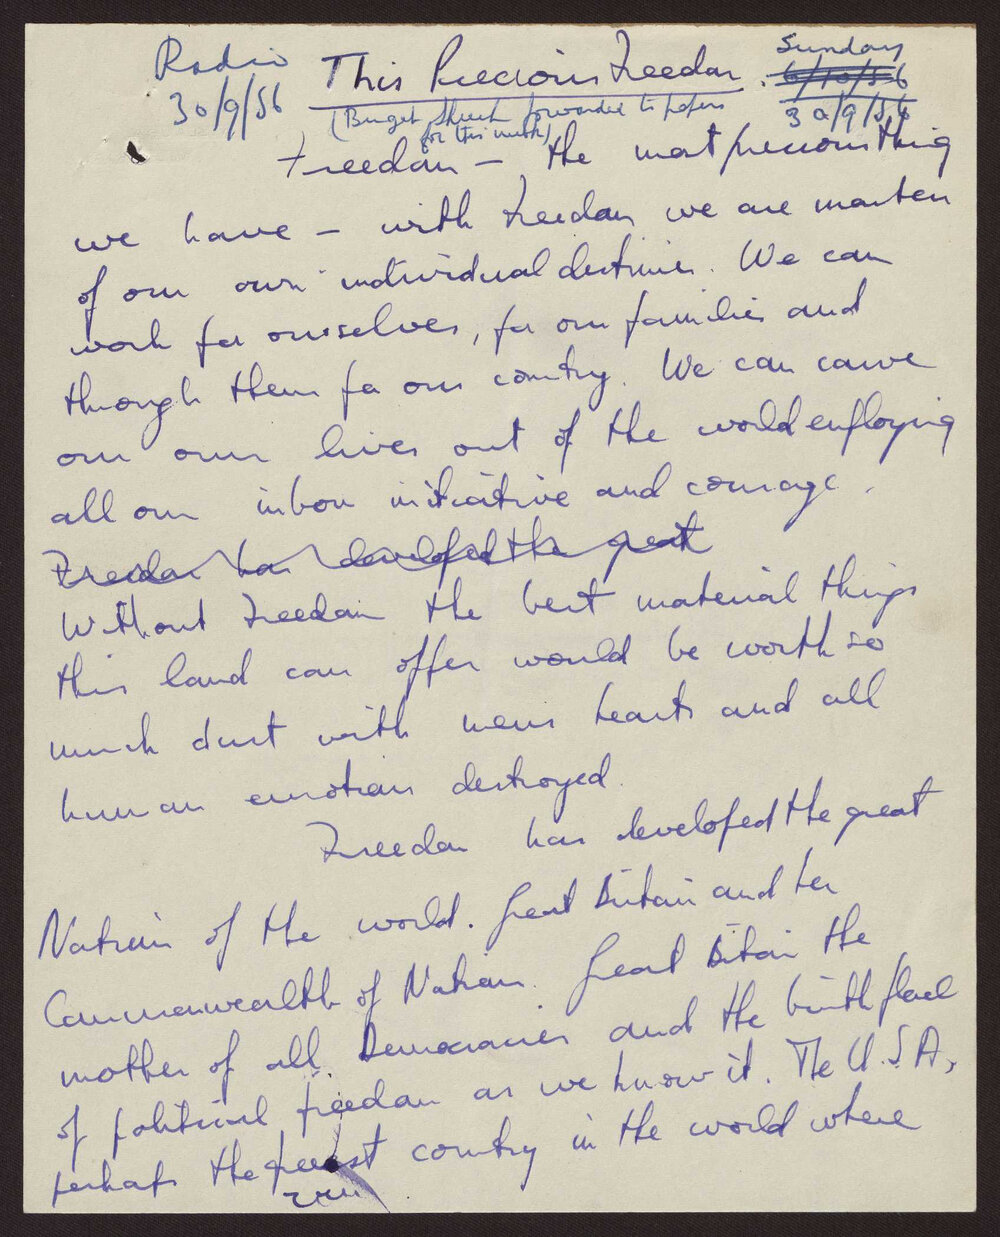 Radio
30/9/56
This Precious Freedom.
Sunday
6/10/56
30/9/56
(Budget speech forwarded to papers
for this week)
Freedom – the most precious thing
we have – with Freedom we are masters
of our own individual destinies. We can
work for ourselves, for our families and
through them for our country. We can carve
our own lives out of the world employing
all our inborn initiative and courage.
Freedom has developed the great
Without Freedom the best material things
this land can offer would be worth so
much dust with mens hearts and all
human emotions destroyed.
Freedom has developed the great
Nations of the world. Great Britain and her
Commonwealth of Nations. Great Britain the
mother of all Democracies and the birth place
of political freedom as we know it. The U.S.A.,
perhaps the freest country in the world where